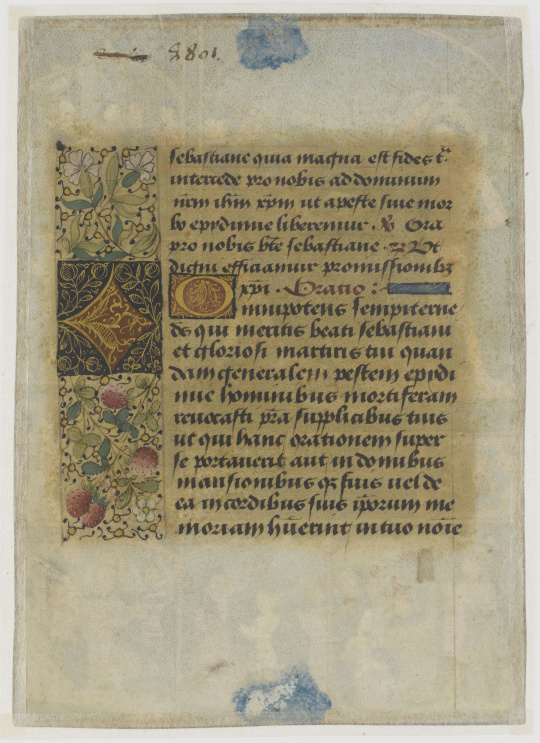 1088
sebastiane quia magna est fides tᷓa
intercede pro nobis ad dominum
nr̄m ih̄m xp̄m ut a peste sive mor
bo epydimie liberemur Ora
pro nobis bt̄e sebastiane Vt
digni efficiamur promissionibꝫ
xp̄i Oratio :
Omnipotens sempiterne
ds̄ qui meritis beati sebastiani
et gloriosi martiris tui quan
dam generalem pestem epydi
mie hominibus mortiferam
revocasti pr̄a supplicibus tuis
ut qui hanc orationem super
se portaverit aut in domibus
mansionibus qꝫ suis vel de
ea in cordibus suis ip̄orum me
moriam hūerint in tuo noīe